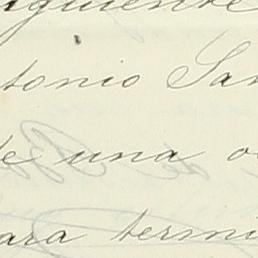 siguiente
ntonio San
de una o
para termi